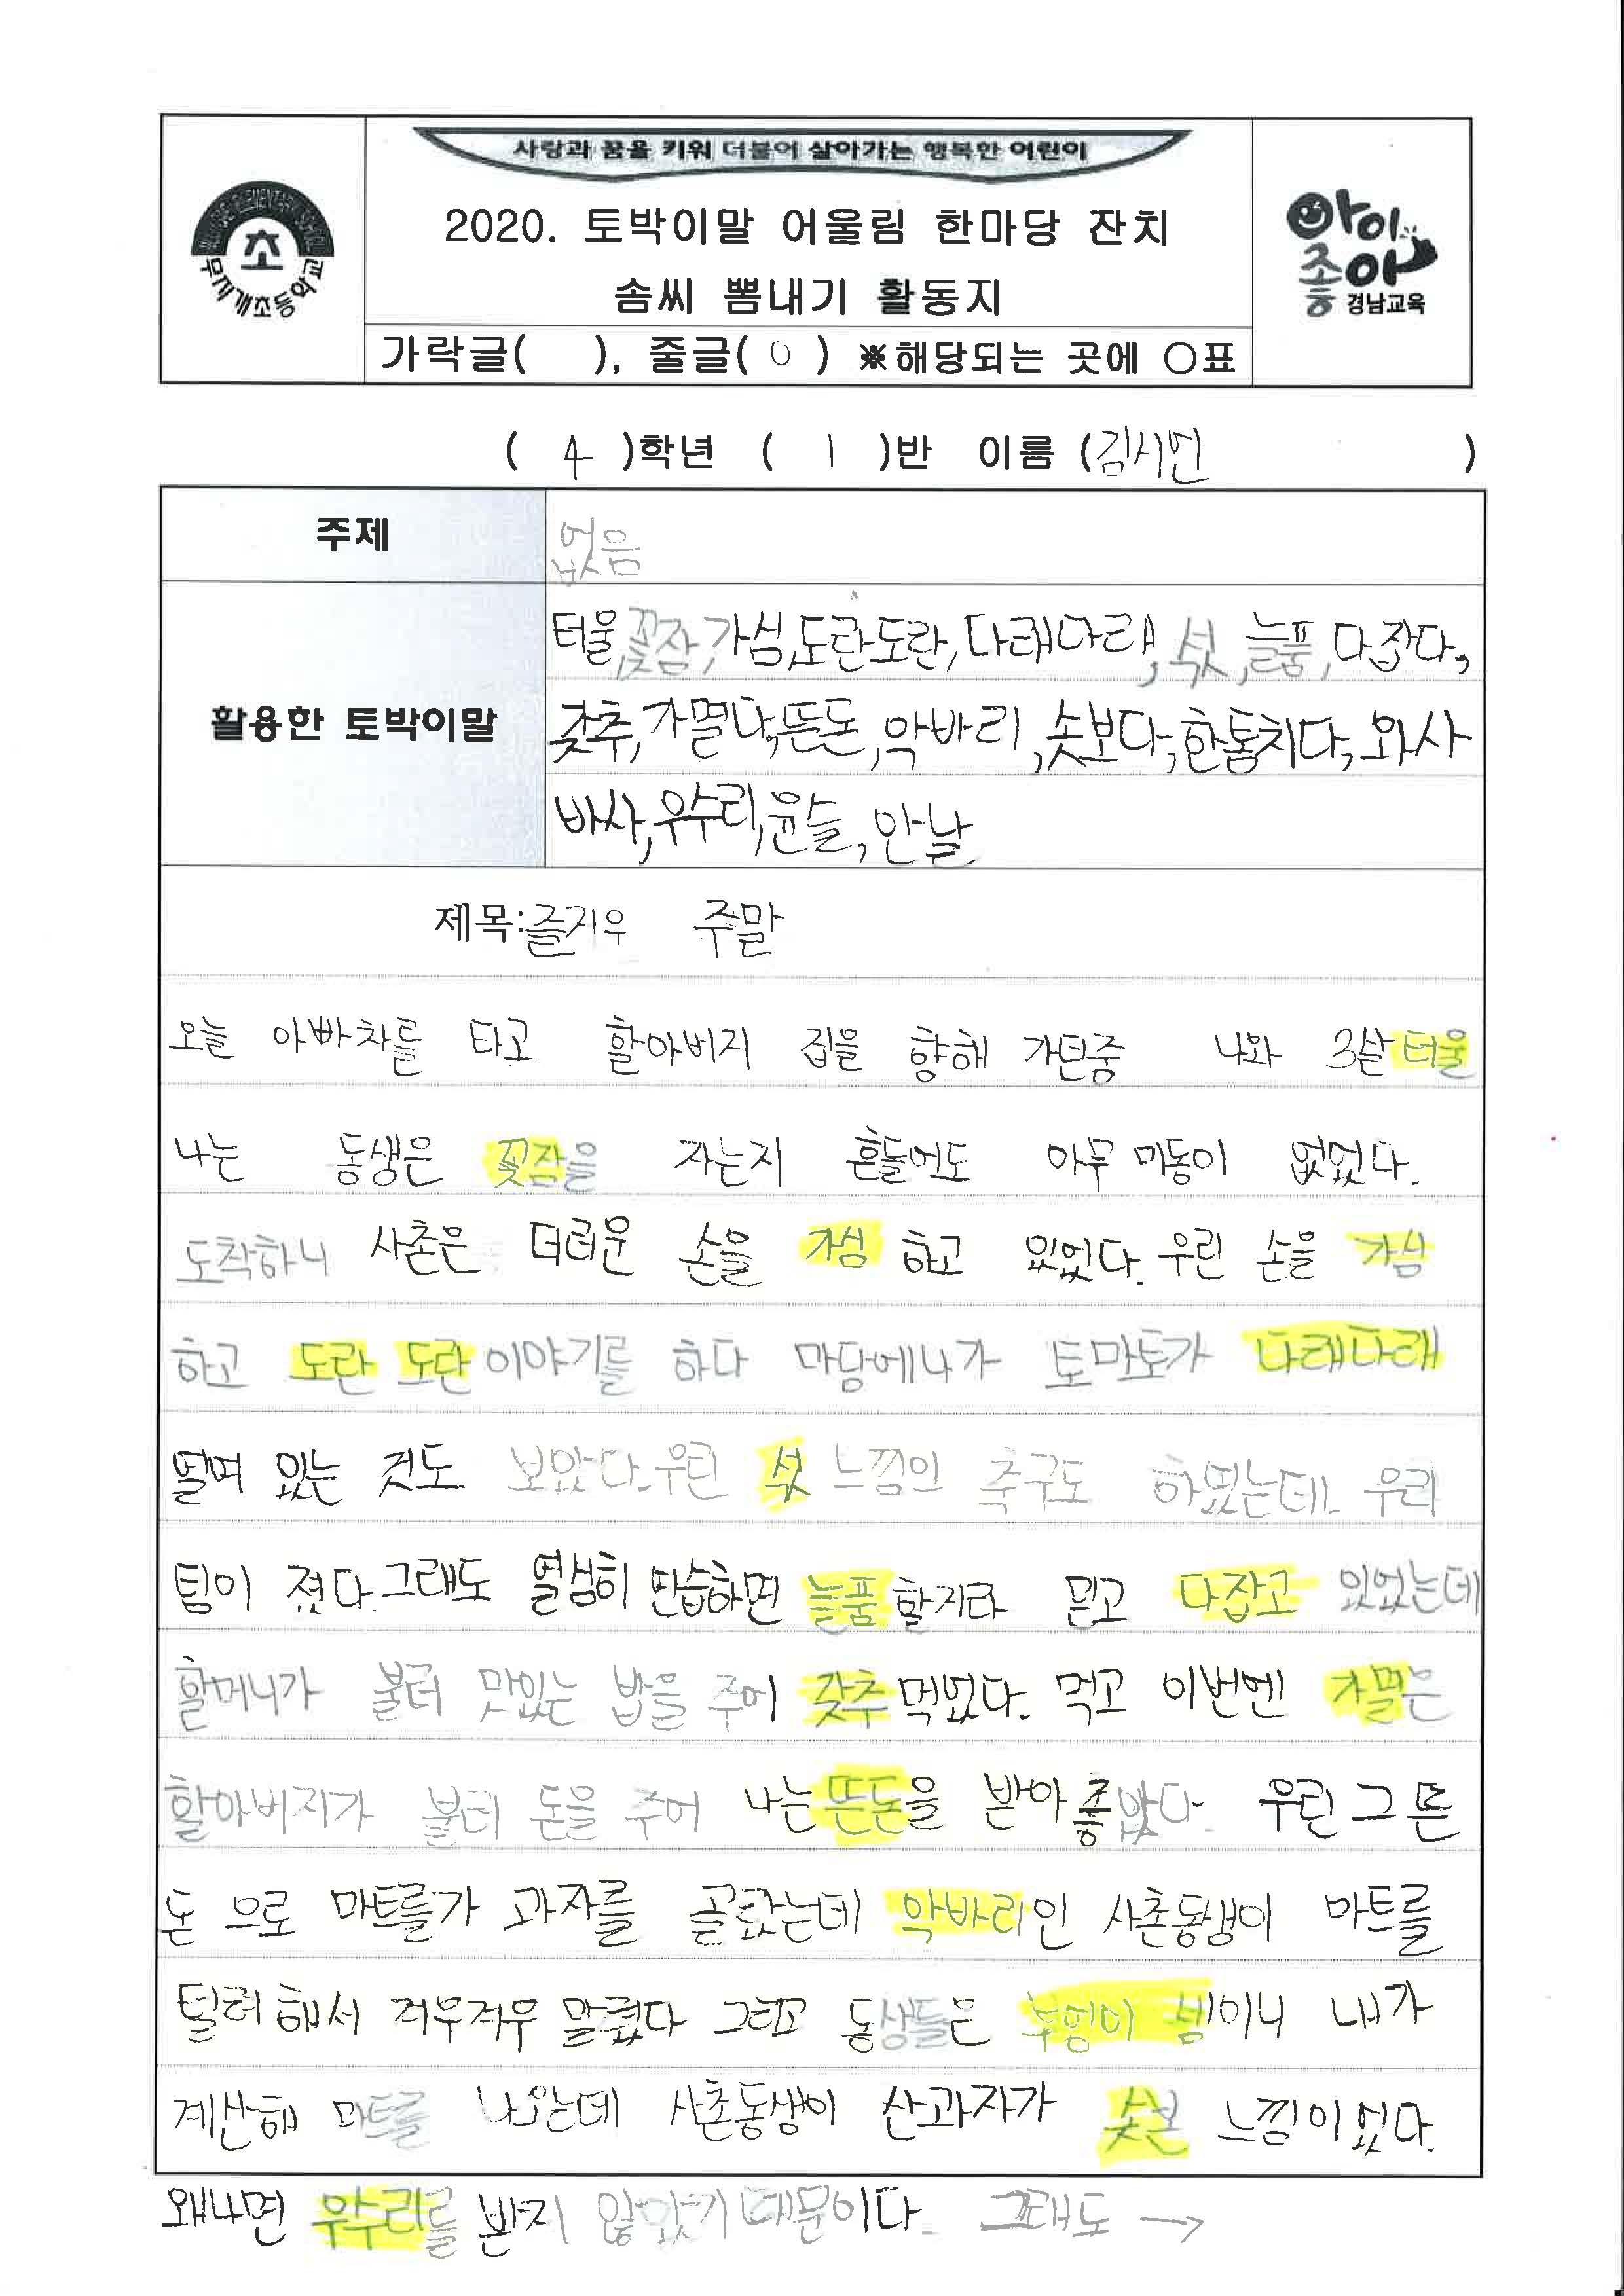 사랑과 꿈을 키워 더불어 살아가는 행복한 어린이
초
무지개초등학교
2020. 토박이말 어울림 한마당 잔치
솜씨 뽐내기 활동지
아이좋아
경남교육
가락글( ), 줄글( O ) ※해당되는 곳에 ○표
( 4 )학년 ( 1 )반 이름 (김시민 )
주제 없음
활용한 토박이말
터울, 꽃잠, 가심, 도란도란, 다래다래, 섟, 늘품, 다잡다,
갖추, 가멸다, 뜬돈, 악바리, 솟보다, 한통치다, 와사
바사, 우수리, 윤슬, 안날
제목: 즐거우 주말
오늘 아빠차를 타고 할아버지 집을 향해 가던중 나와 3살 터울
나는 동생은 꽃잠을 자는지 흔들어도 아무 미동이 없었다.
도착하니 사촌은 더러운 손을 가심 하고 있었다. 우린 손을 가심
하고 도란 도란 이야기를 하다 마당에나가 토마토가 다래다래
열려 있는 것도 보았다. 우린 섟 느낌의 축구도 하였는데. 우리
팀이 졌다. 그래도 열심히 연습하면 늘품 할지라 믿고 다잡고 있었는데
할머니가 불러 맛있는 밥을 주어 갖추 먹었다. 먹고 이번엔 가멸은
할아버지가 불러 돈을 주어 나는 뜬돈을 받아 좋았다. 우린 그 뜬
돈 으로 마트를가 과자를 골랐는데 악바리인 사촌동생이 마트를
털려 해서 겨우겨우 말렸다 그리고 동생들은 부엉이 셈이니 내가
계산해 마트를 나왔는데 사촌동생이 산과자가 솟본 느낌이 있다.
왜냐면 우수리를 받지 않았기 때문이다. 그래도 →